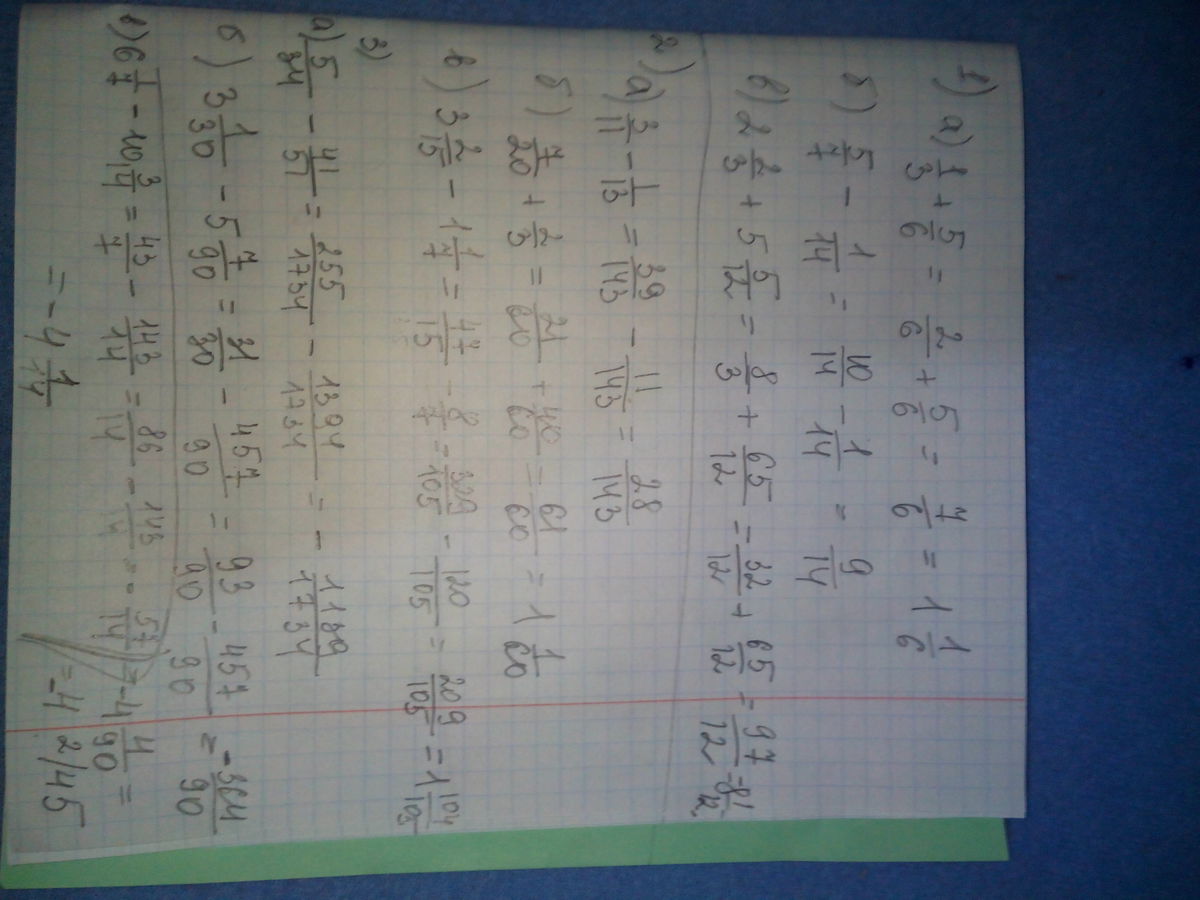 1) а) 1/3 + 5/6 = 2/6 + 5/6 = 7/6 = 1 1/6
б) 5/7 - 1/14 = 10/14 - 1/14 = 9/14
в) 2 2/3 + 5 5/12 = 8/3 + 65/12 = 32/12 + 65/12 = 97/12 = 8 1/12
2) а) 3/11 - 1/13 = 39/143 - 11/143 = 28/143
б) 7/20 + 2/3 = 21/60 + 40/60 = 61/60 = 1 1/60
в) 3 2/15 - 1 1/7 = 47/15 - 8/7 = 329/105 - 120/105 = 209/105 = 1 104/105
3)
а) 5/34 - 41/51 = 255/1734 - 1394/1734 = - 1139/1734
б) 3 1/30 - 5 7/90 = 31/30 - 457/90 = 93/90 - 457/90 = -364/90
= -4 4/90 =
= -4 2/45
в) 6 1/7 - 10 3/14 = 43/7 - 143/14 = 86/14 - 143/14 = - 57/14
= -4 1/14